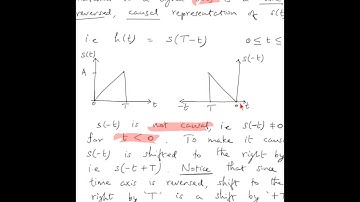 reversed, causal representation of s(t
i.e h(t) = s(T-t) 0 ≤ t ≤
s(t)
s(-t)
A
0 T t
-t T 0 t
s(-t) is not causal, i.e s(-t) ≠ 0
for t < 0. To make it caus
s(-t) is shifted to the right by
i.e s(-t+T). Notice that since
time axis is reversed, shift to the
right by 'T' is a shift by '+T